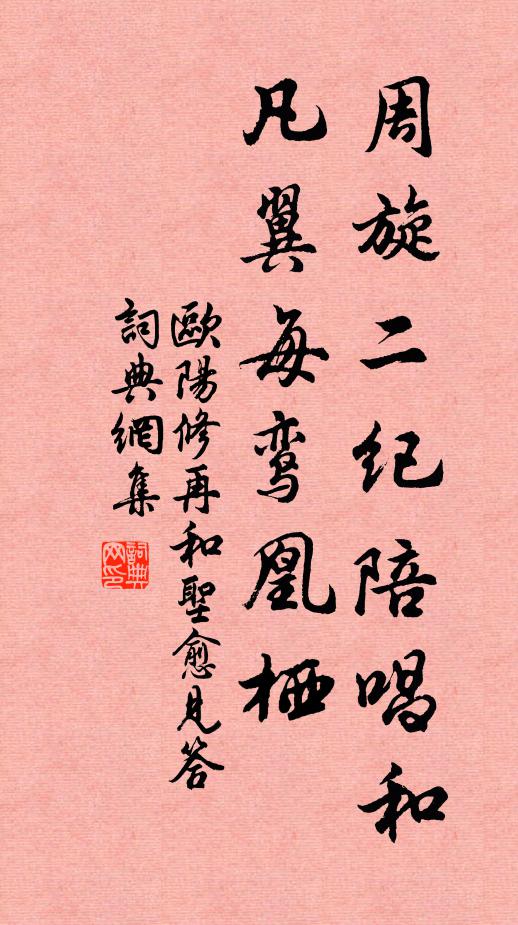 周旋二纪陪唱和
凡翼每鸾凰栖
歐陽修再和聖愈見答
詞典網集
詞典网印